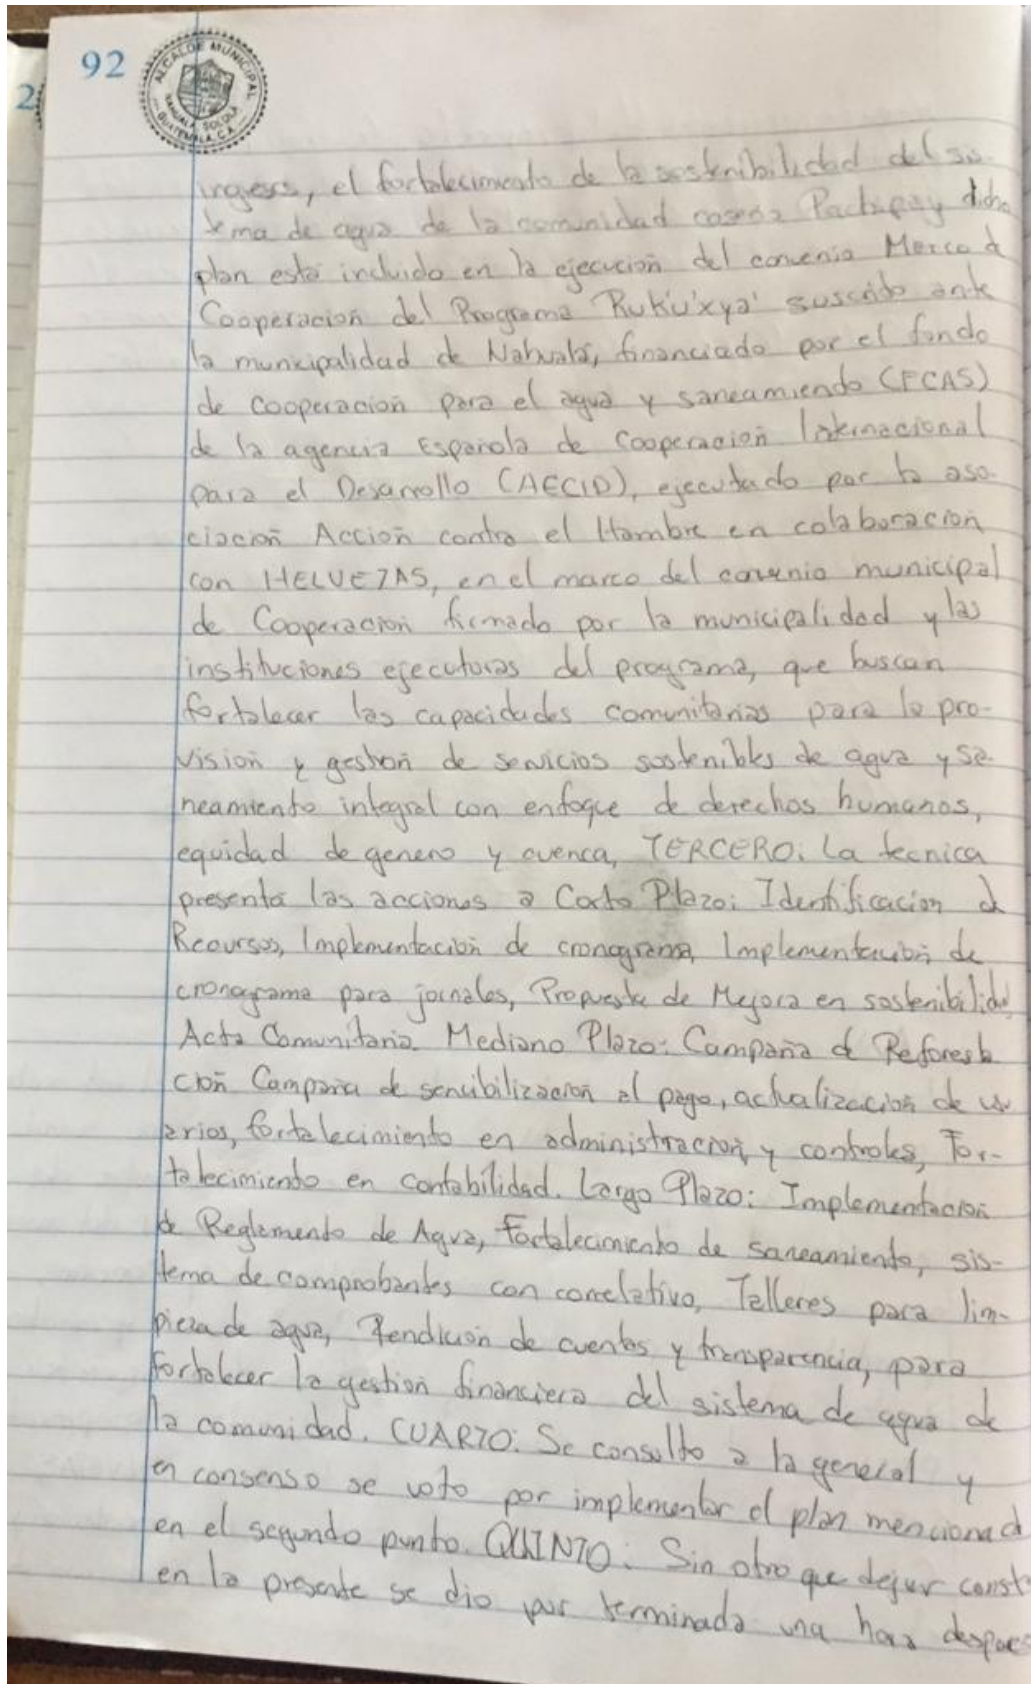 92
2
ALCALDE MUNICIPAL
NAHUALA, SOLOLA
GUATEMALA, C.A.
ingresos, el fortalecimiento de la sostenibilidad del sis-
tema de agua de la comunidad caserío Pachipay dicho
plan está incluido en la ejecución del convenio Marco de
Cooperación del Programa Rukuꞌxyaꞌ suscrito ante
la municipalidad de Nahualá, financiado por el fondo
de cooperación para el agua y saneamiento (FCAS)
de la agencia Española de Cooperación Internacional
para el Desarrollo (AECID), ejecutado por la aso-
ciación Acción contra el Hambre en colaboración
con HELVETAS, en el marco del convenio municipal
de Cooperación firmado por la municipalidad y las
instituciones ejecutoras del programa, que buscan
fortalecer las capacidades comunitarias para la pro-
visión y gestión de servicios sostenibles de agua y sa-
neamiento integral con enfoque de derechos humanos,
equidad de genero y cuenca, TERCERO: La tecnica
presentó las acciones a Corto Plazo: Identificacion de
Recursos, Implementación de cronograma, Implementación de
cronograma para jornales, Propuesta de Mejora en sostenibilidad
Acta Comunitaria. Mediano Plazo: Campaña de Reforesta
ción Campaña de sencibilización al pago, actualización de usu
arios, fortalecimiento en administración y controles, For-
talecimiento en contabilidad. Largo Plazo: Implementación
de Reglamento de Agua, Fortalecimiento de saneamiento, sis-
tema de comprobantes con correlativo, Talleres para lim-
pieza de agua, Rendición de cuentas y transparencia, para
fortalecer la gestión financiera del sistema de agua de
la comunidad. CUARTO: Se consulto a la general y
en consenso se voto por implementar el plan mencionad
en el segundo punto. QUINTO: Sin otro que dejar const
en la presente se dio por terminada una hora despues